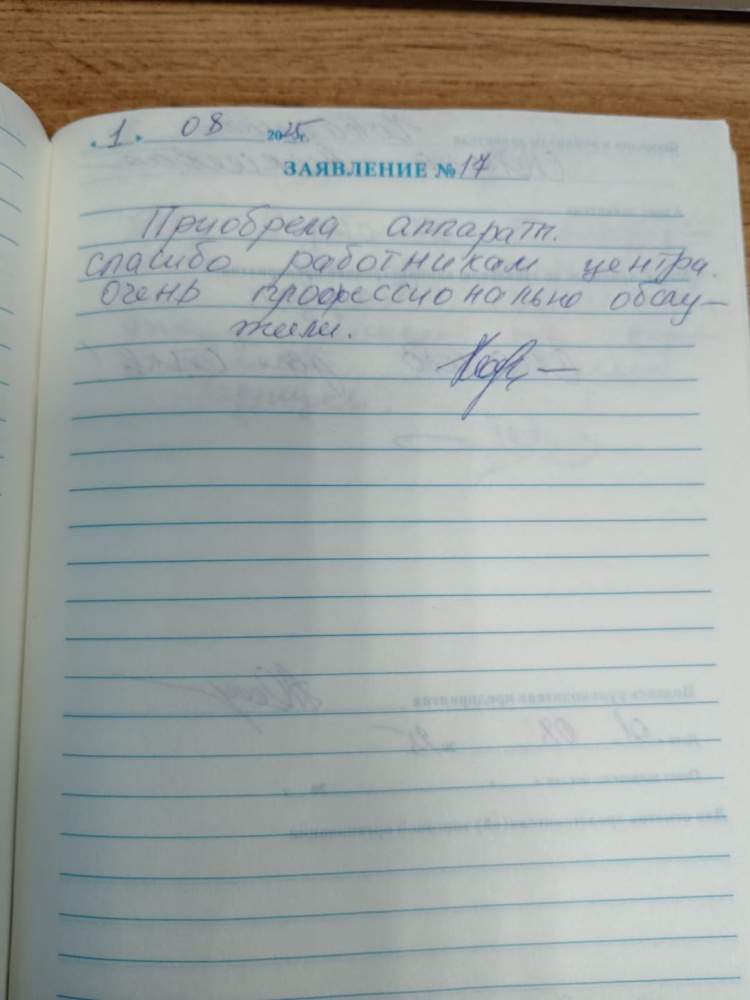 « 1 » 08 2025г.
ЗАЯВЛЕНИЕ № 17
Приобрела аппарат.
спасибо работникам центра.
очень профессионально обслу-
жили.